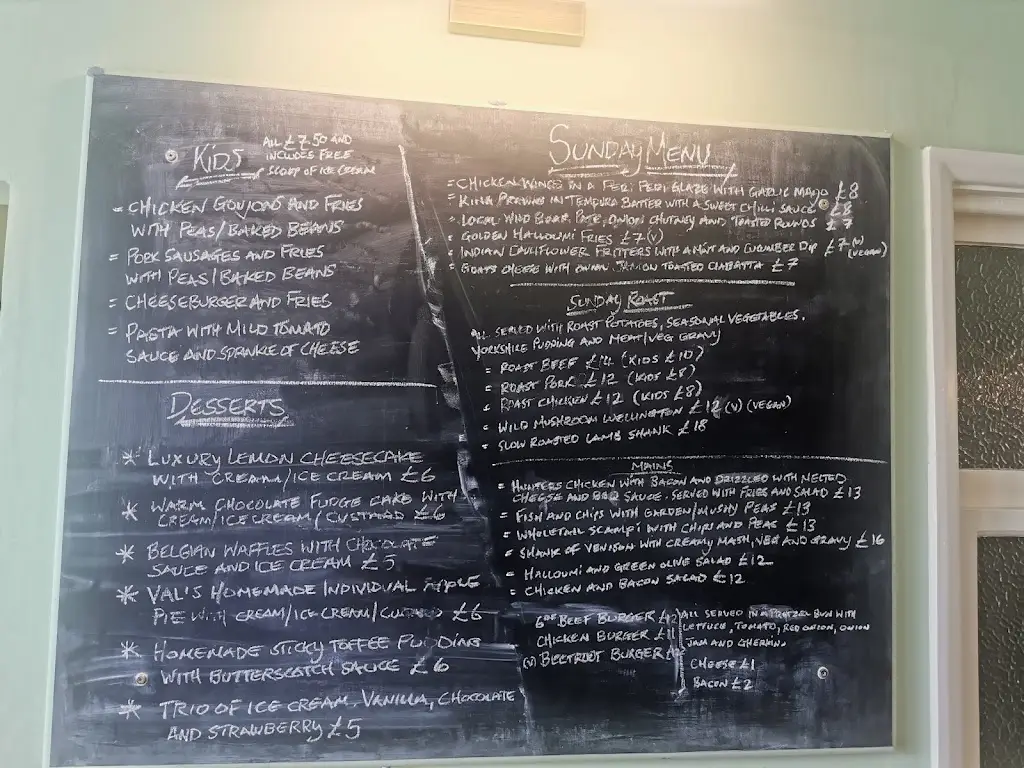 KIDS
ALL £7.50 AND
INCLUDES FREE
SCOOP OF ICE CREAM
= CHICKEN GOUJONS AND FRIES
WITH PEAS/BAKED BEANS
= PORK SAUSAGES AND FRIES
WITH PEAS/BAKED BEANS
= CHEESEBURGER AND FRIES
= PASTA WITH MILD TOMATO
SAUCE AND SPRINKLE OF CHEESE
DESSERTS
* LUXURY LEMON CHEESECAKE
WITH CREAM/ICE CREAM £6
* WARM CHOCOLATE FUDGE CAKE WITH
CREAM/ICE CREAM/CUSTARD £6
* BELGIAN WAFFLES WITH CHOCOLATE
SAUCE AND ICE CREAM £5
* VAL'S HOMEMADE INDIVIDUAL APPLE
PIE WITH CREAM/ICE CREAM/CUSTARD £6
* HOMEMADE STICKY TOFFEE PUDDING
WITH BUTTERSCOTCH SAUCE £6
* TRIO OF ICE CREAM. VANILLA, CHOCOLATE
AND STRAWBERRY £5
SUNDAY MENU
= CHICKEN WINGS IN A PERI PERI GLAZE WITH GARLIC MAYO £8
= KING PRAWNS IN TEMPURA BATTER WITH A SWEET CHILLI SAUCE £8
= LOCAL WILD BOAR PATE, ONION CHUTNEY AND TOASTED ROUNDS £7
= GOLDEN HALLOUMI FRIES £7 (V)
= INDIAN CAULIFLOWER FRITTERS WITH A MINT AND CUCUMBER DIP £7 (V) (VEGAN)
= GOATS CHEESE WITH ONION JAM ON TOASTED CIABATTA £7
SUNDAY ROAST
ALL SERVED WITH ROAST POTATOES, SEASONAL VEGETABLES,
YORKSHIRE PUDDING AND MEAT/VEG GRAVY
= ROAST BEEF £14 (KIDS £10)
= ROAST PORK £12 (KIDS £8)
= ROAST CHICKEN £12 (KIDS £8)
= WILD MUSHROOM WELLINGTON £12 (V) (VEGAN)
= SLOW ROASTED LAMB SHANK £18
MAINS
= HUNTERS CHICKEN WITH BACON AND DRIZZLED WITH MELTED
CHEESE AND BBQ SAUCE. SERVED WITH FRIES AND SALAD £13
= FISH AND CHIPS WITH GARDEN/MUSHY PEAS £13
= WHOLETAIL SCAMPI WITH CHIPS AND PEAS £13
= SHANK OF VENISON WITH CREAMY MASH, VEG AND GRAVY £16
= HALLOUMI AND GREEN OLIVE SALAD £12
= CHICKEN AND BACON SALAD £12
6oz BEEF BURGER £12
CHICKEN BURGER £11
(V) BEETROOT BURGER
ALL SERVED IN A PRETZEL BUN WITH
LETTUCE, TOMATO, RED ONION, ONION
JAM AND GHERKIN.
CHEESE £1
BACON £2